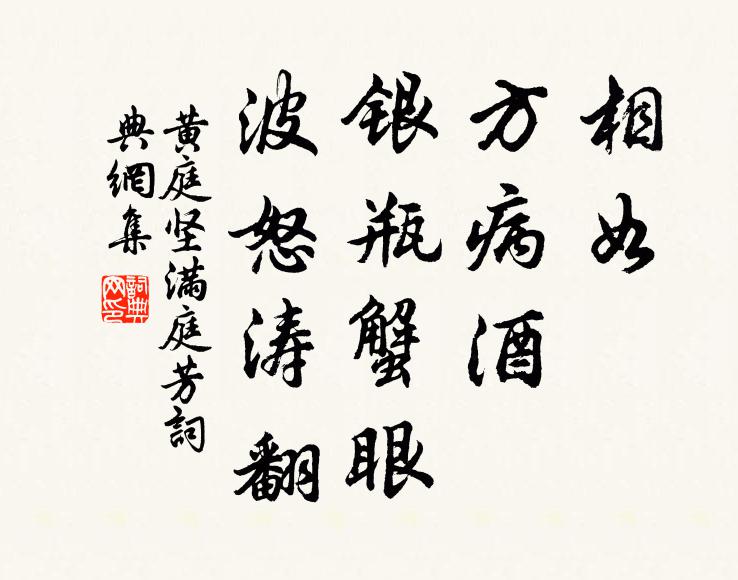 相如
方病酒
银瓶蟹眼
波怒涛翻
黄庭坚满庭芳詞
典網集
詞典网印